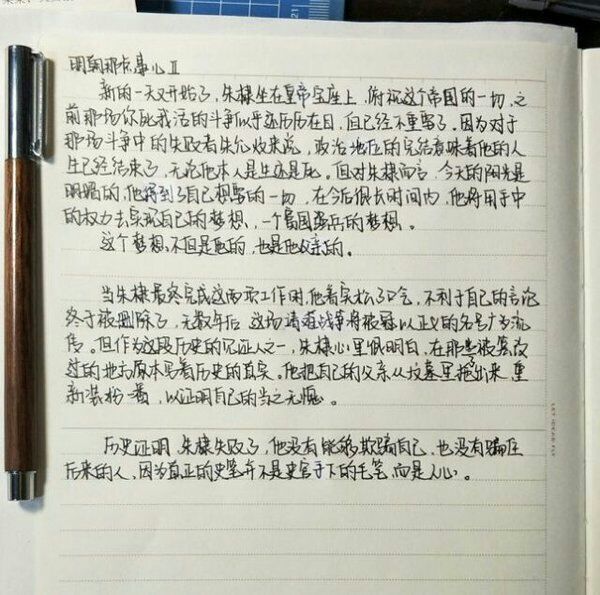 明朝那些事儿 II
新的一天又开始了，朱棣坐在皇帝宝座上，俯视这个帝国的一切，之
前那场你死我活的斗争似乎还历历在目，但已经不重要了。因为对于
那场斗争中的失败者朱允炆来说，政治地位的完结意味着他的人
生已经结束了，无论他本人是生还是死。但对朱棣而言，今天的阳光是
明媚的，他得到了自己想要的一切，在今后很长时间内，他将用手中
的权力去实现自己的梦想，一个富国强兵的梦想。
这个梦想不但是他的，也是他父亲的。
当朱棣最终完成这两项工作时，他着实松了口气，不利于自己的言论
终于被删除了，无数年后，这场靖难战争将被冠以正义的名号广为流
传。但作为这段历史的见证人之一，朱棣心里很明白，在那些被篡改
过的地方原本写着历史的真实。他把自己的父亲从坟墓里拖出来 重
新装扮一番，以证明自己的当之无愧。
历史证明，朱棣失败了，他没有能够欺骗自己，也没有骗住
后来的人，因为真正的史笔并不是史官手下的毛笔，而是人心。